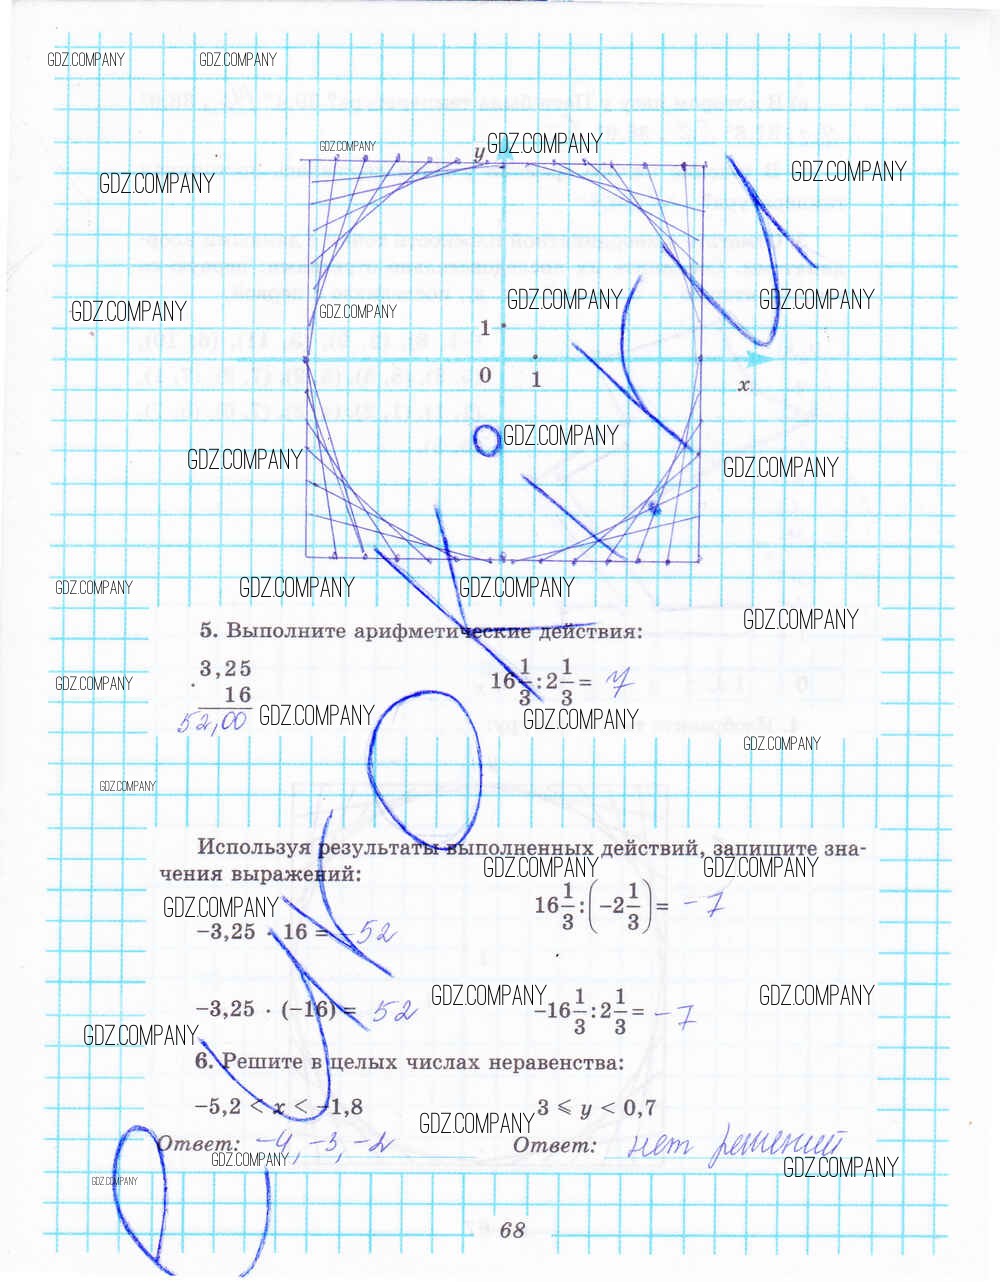 GDZ.COMPANY GDZ.COMPANY
GDZ.COMPANY y GDZ.COMPANY
GDZ.COMPANY GDZ.COMPANY
GDZ.COMPANY GDZ.COMPANY GDZ.COMPANY GDZ.COMPANY
1
0 1 x
GDZ.COMPANY
GDZ.COMPANY GDZ.COMPANY
GDZ.COMPANY GDZ.COMPANY GDZ.COMPANY
GDZ.COMPANY
5. Выполните арифметические действия:
· 3,25
16
52,00
16 1/3 : 2 1/3 = 7
GDZ.COMPANY
GDZ.COMPANY GDZ.COMPANY
GDZ.COMPANY
GDZ.COMPANY
Используя результаты выполненных действий, запишите зна-
чения выражений:
GDZ.COMPANY GDZ.COMPANY
GDZ.COMPANY
−3,25 · 16 = −52
16 1/3 : (−2 1/3) = −7
GDZ.COMPANY GDZ.COMPANY
−3,25 · (−16) = 52
−16 1/3 : 2 1/3 = −7
GDZ.COMPANY
6. Решите в целых числах неравенства:
−5,2 < x < −1,8
3 ⩽ y < 0,7
GDZ.COMPANY
Ответ: −4, −3, −2
Ответ: нет решений
GDZ.COMPANY GDZ.COMPANY
GDZ.COMPANY
68